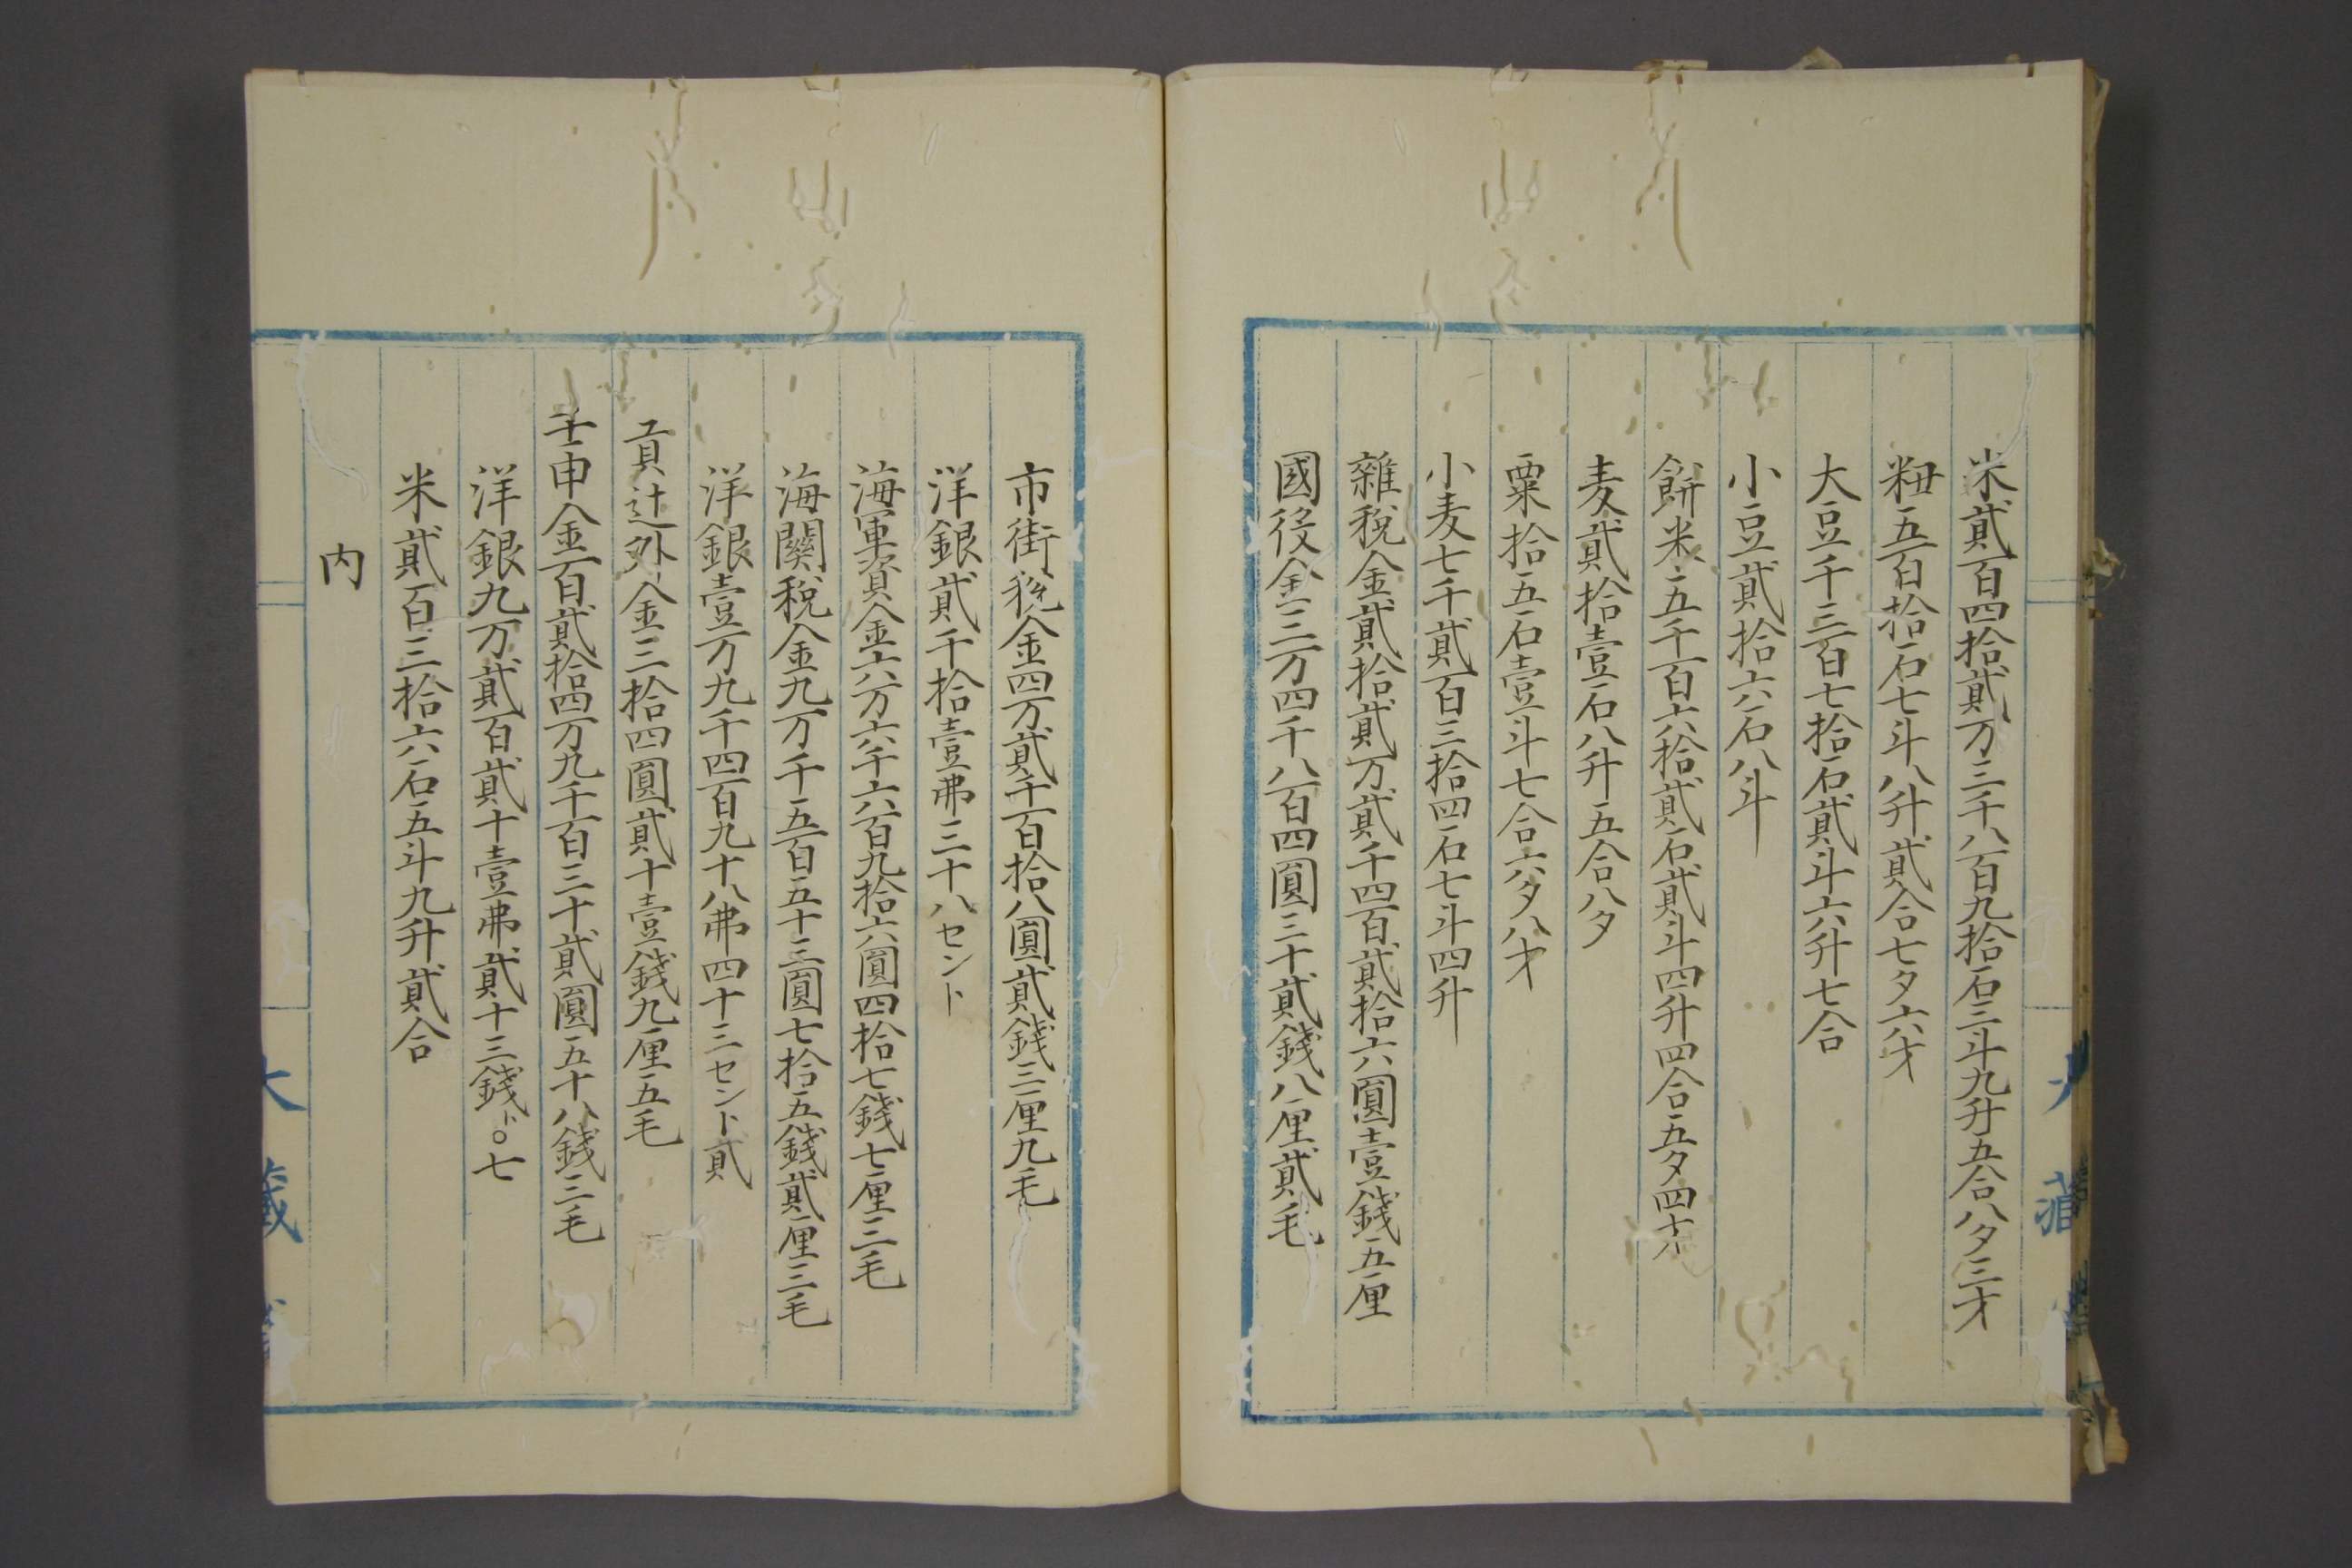 米貳百四拾貳万三千八百九拾石三斗九升五合八夕三才
籾五百拾石七斗八升貳合七夕六才
大豆千三百七拾石貳斗六升七合
小豆貳拾六石八斗
餅米五千百六拾貳石貳斗四升四合五夕四才
麦貳拾壹石八升五合八夕
粟拾五石壹斗七合六夕八才
小麦七千貳百三拾四石七斗四升
雜税金貳拾貳万貳千四百貳拾六圓壹錢五厘
國役金三万四千八百四圓三十貳錢八厘貳毛
市街税金四万貳千百拾八圓貳錢三厘九毛
洋銀貳千拾壹弗三十八セント
海軍資金六万六千六百九拾六圓四拾七錢七厘三毛
海關税金九万千五百五十三圓七拾五錢貳厘三毛
洋銀壹万九千四百九十八弗四十三セント貳
貢辻外金三拾四圓貳十壹錢九厘五毛
壬申金百貳拾四万九千百三十貳圓五十八錢三毛
洋銀九万貳百貳十壹弗貳十三錢ト〇七
米貳百三拾六石五斗九升貳合
内
大藏